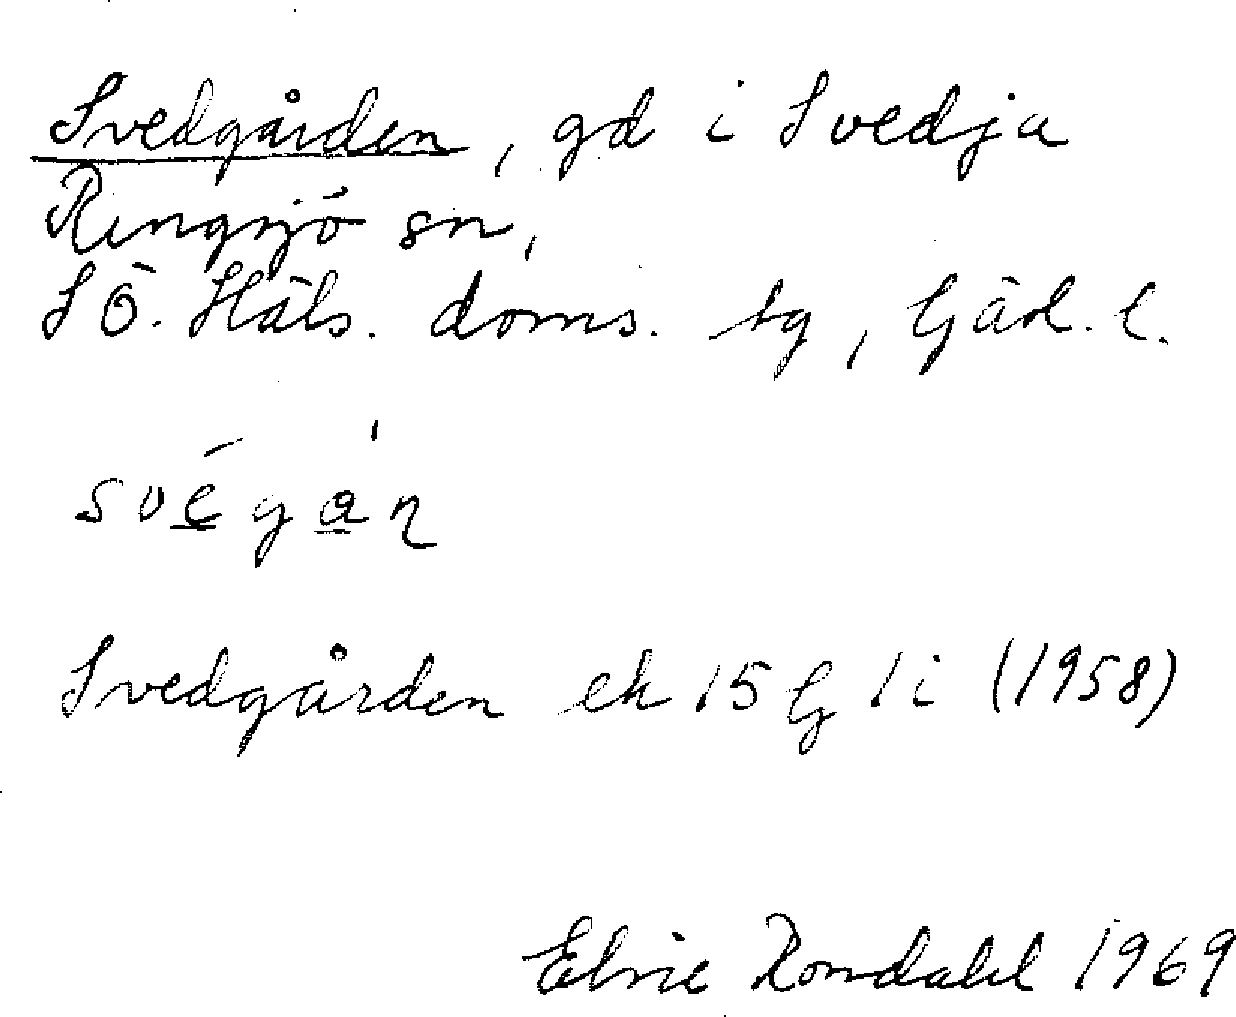 Svedgården, gd i Svedja
Ringsjö sn,
S Ö. Häls. doms. tg, Gäv. l.
své gá n
Svedgården ek 15 G 1 i (1958)
Elvie Romdahl 1969